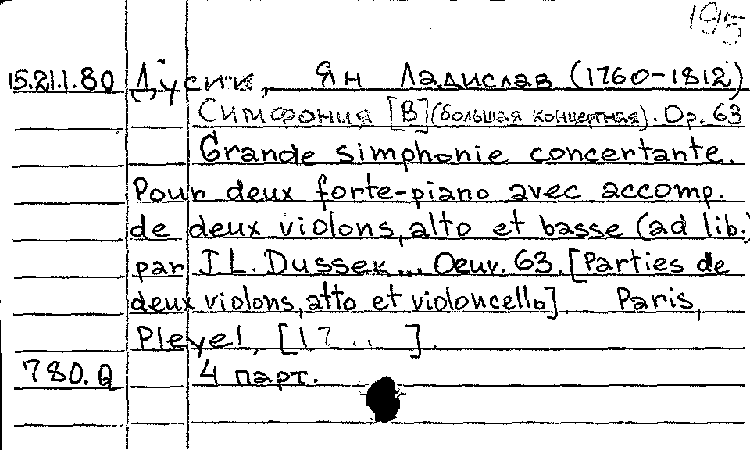 195
15.21.1.80 Дусик, Ян Ладислав (1760-1812)
Симфония [B] (большая концертная). Op. 63
Grande simphonie concertante.
Pour deux forte-piano avec accomp.
de deux violons, alto et basse (ad lib.)
par J L. Dussek... Oeuv. 63. [Parties de
deux violons, alto et violoncello]. Paris,
Pleyel, [17 ... ].
780.Q 4 парт.